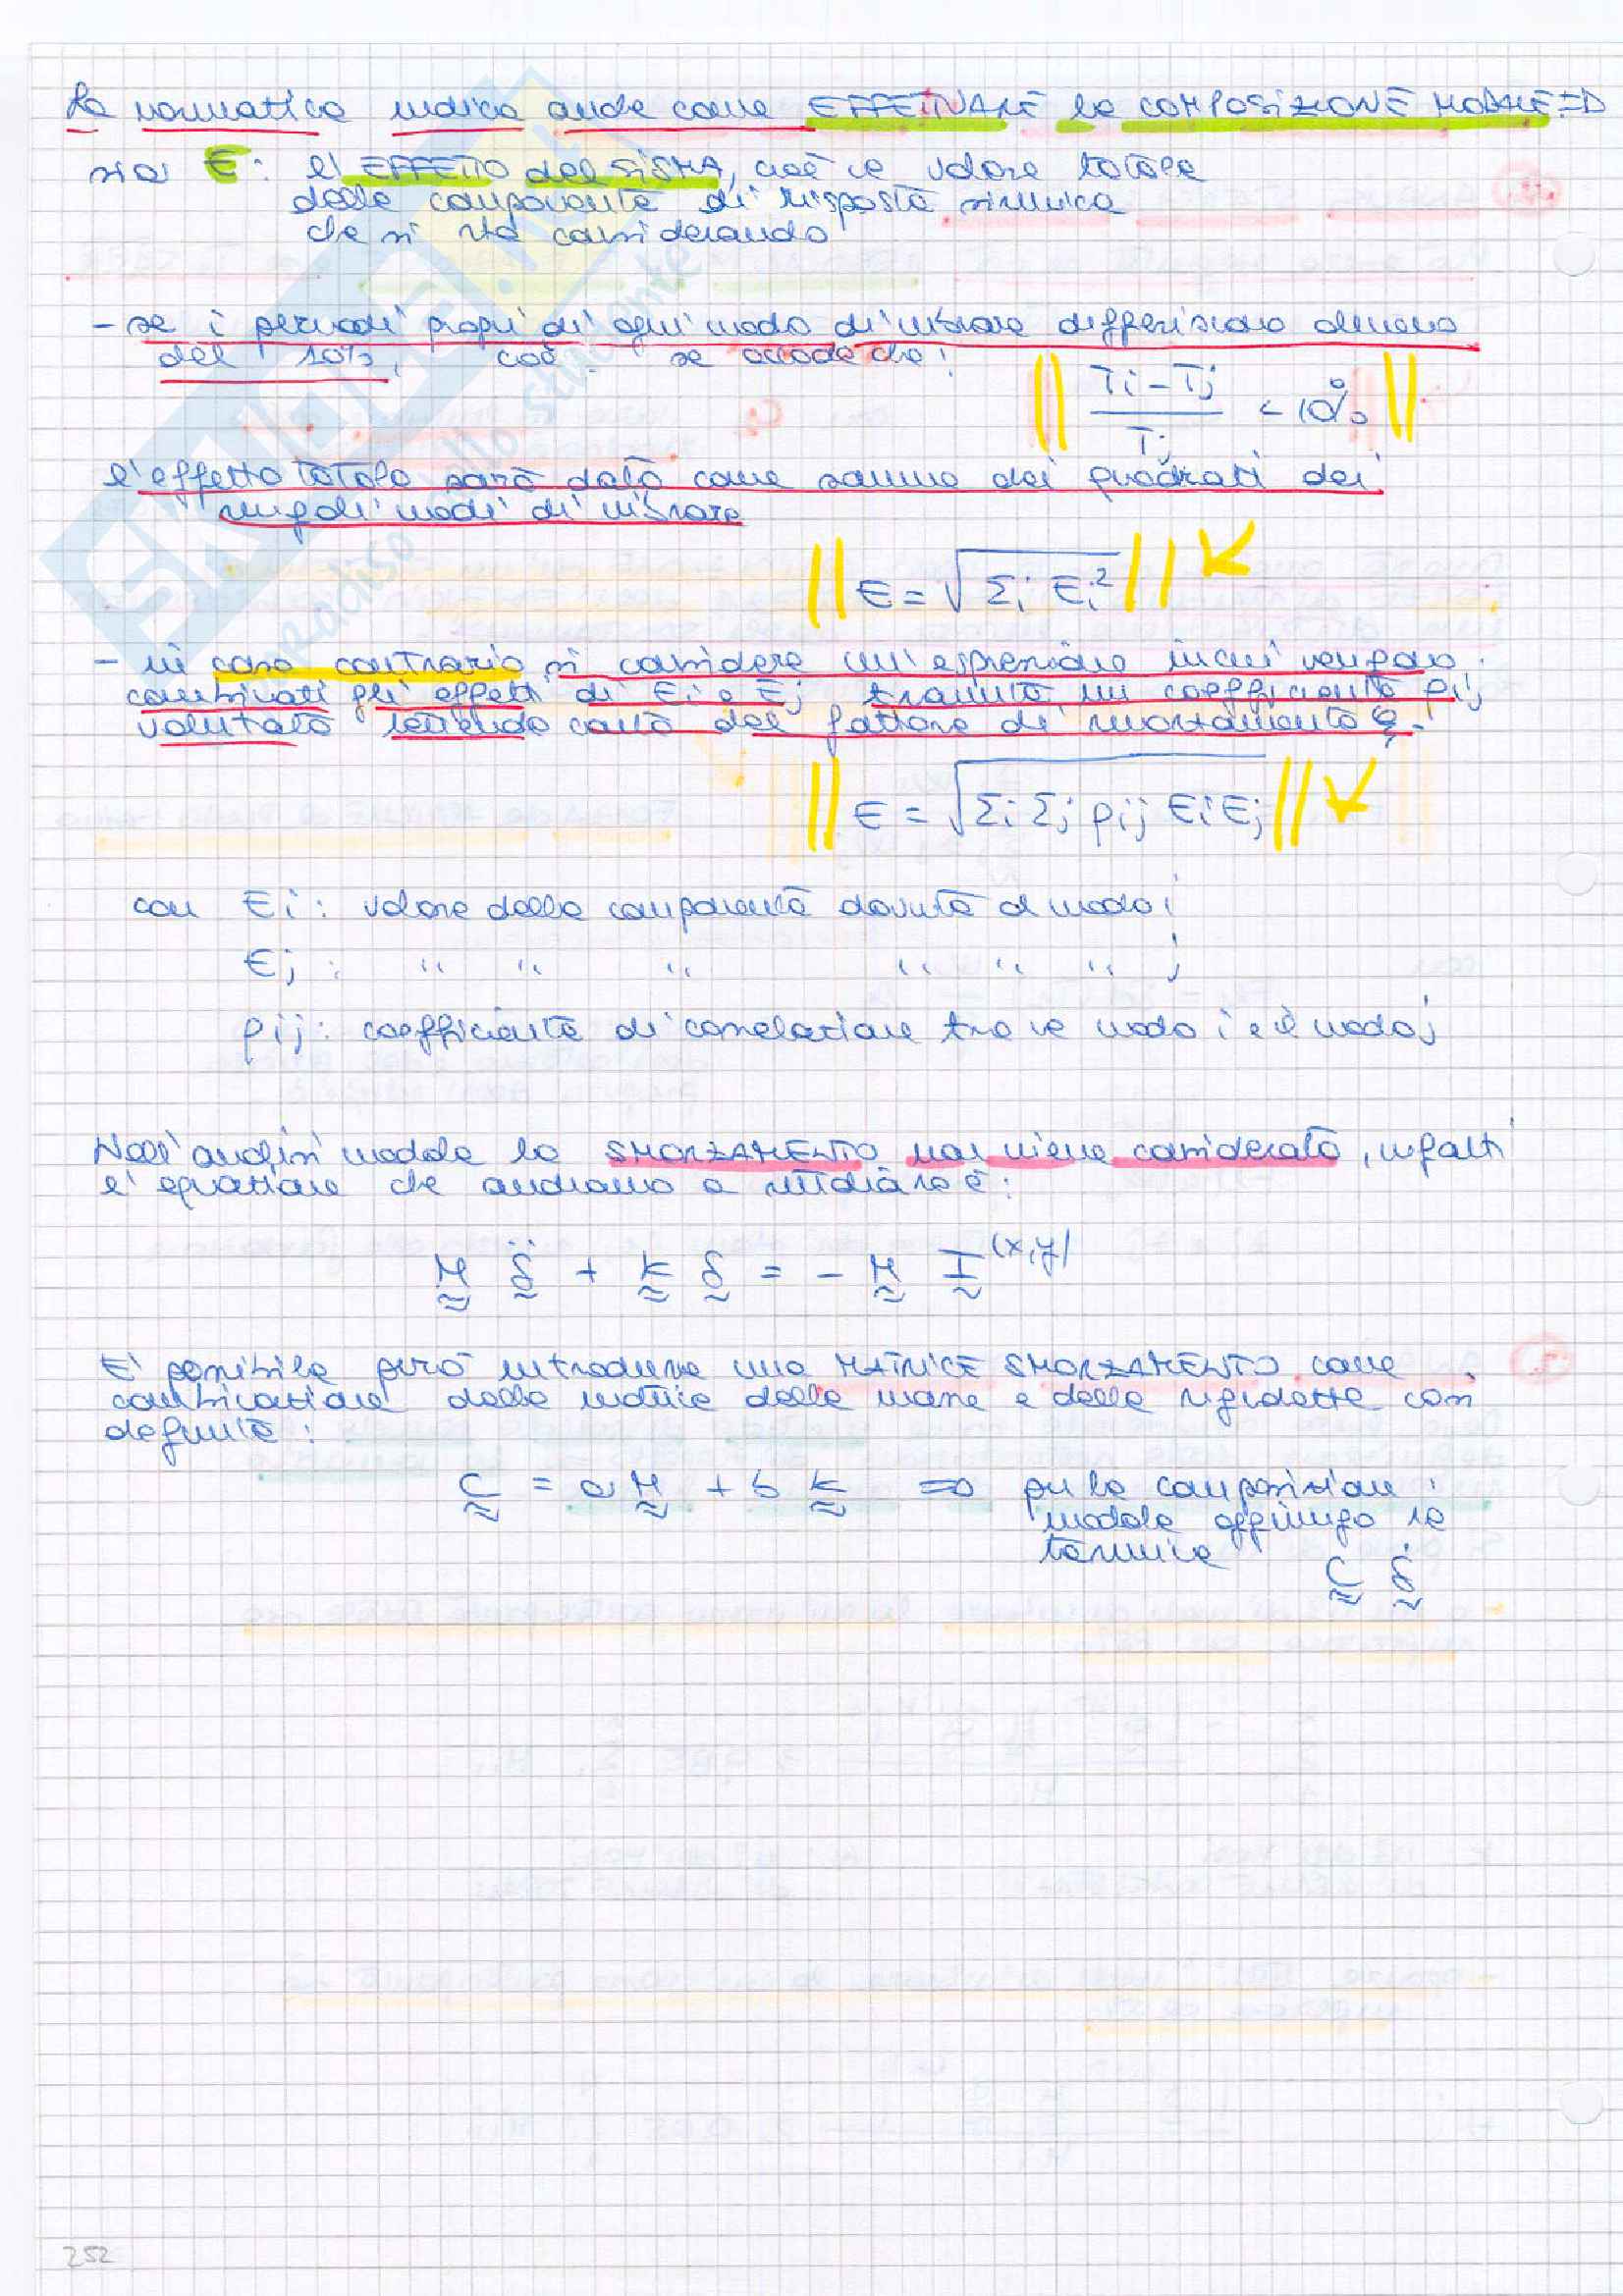 La normativa indica anche come EFFETTUARE la COMPOSIZIONE MODALE =D
sia E: l'EFFETTO del SISMA, cioè il valore totale
della componente di risposta sismica
che si sta considerando
- se i periodi propri di ogni modo di vibrare differiscono almeno
del 10%, cioè se accade che:
Ti - Tj / Tj < 10%
l'effetto totale sarà dato come somma dei quadrati dei
singoli modi di vibrare
E = √ Σi Ei²
- in caso contrario si considera un'espressione in cui vengono
combinati gli effetti di Ei e Ej tramite un coefficiente ρij
valutato tenendo conto del fattore di smorzamento ξ.
E = √ Σi Σj ρij Ei Ej
con Ei: valore della componente dovuta al modo i
Ej: " " " " " " j
ρij: coefficiente di correlazione tra il modo i e il modo j
Nell'analisi modale lo SMORZAMENTO non viene considerato, infatti
l'equazione che andiamo a studiare è:
M δ̈ + K δ = - M I (x,y)
E' possibile però introdurre una MATRICE SMORZAMENTO come
combinazione della matrice delle masse e delle rigidezze così
definita:
C = a M + b K =D per la composizione
modale aggiungo il
termine
C δ̇
252